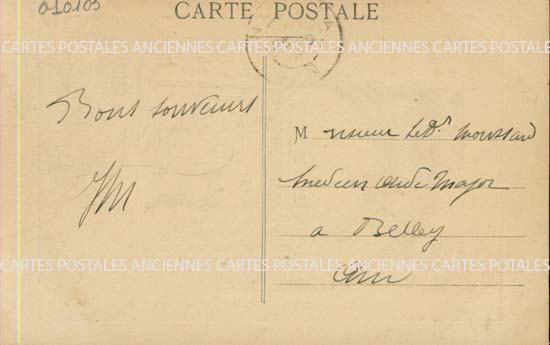 010103
CARTE POSTALE
CARTES POSTALES ANCIENNES CARTES POSTALES ANCIENNES CARTES POSTALES
Bons souvenirs
Monsieur le Dr
Médecin Aide Major
a Belley
Ain
CARTES POSTALES ANCIENNES CARTES POSTALES ANCIENNES CARTES POSTALES